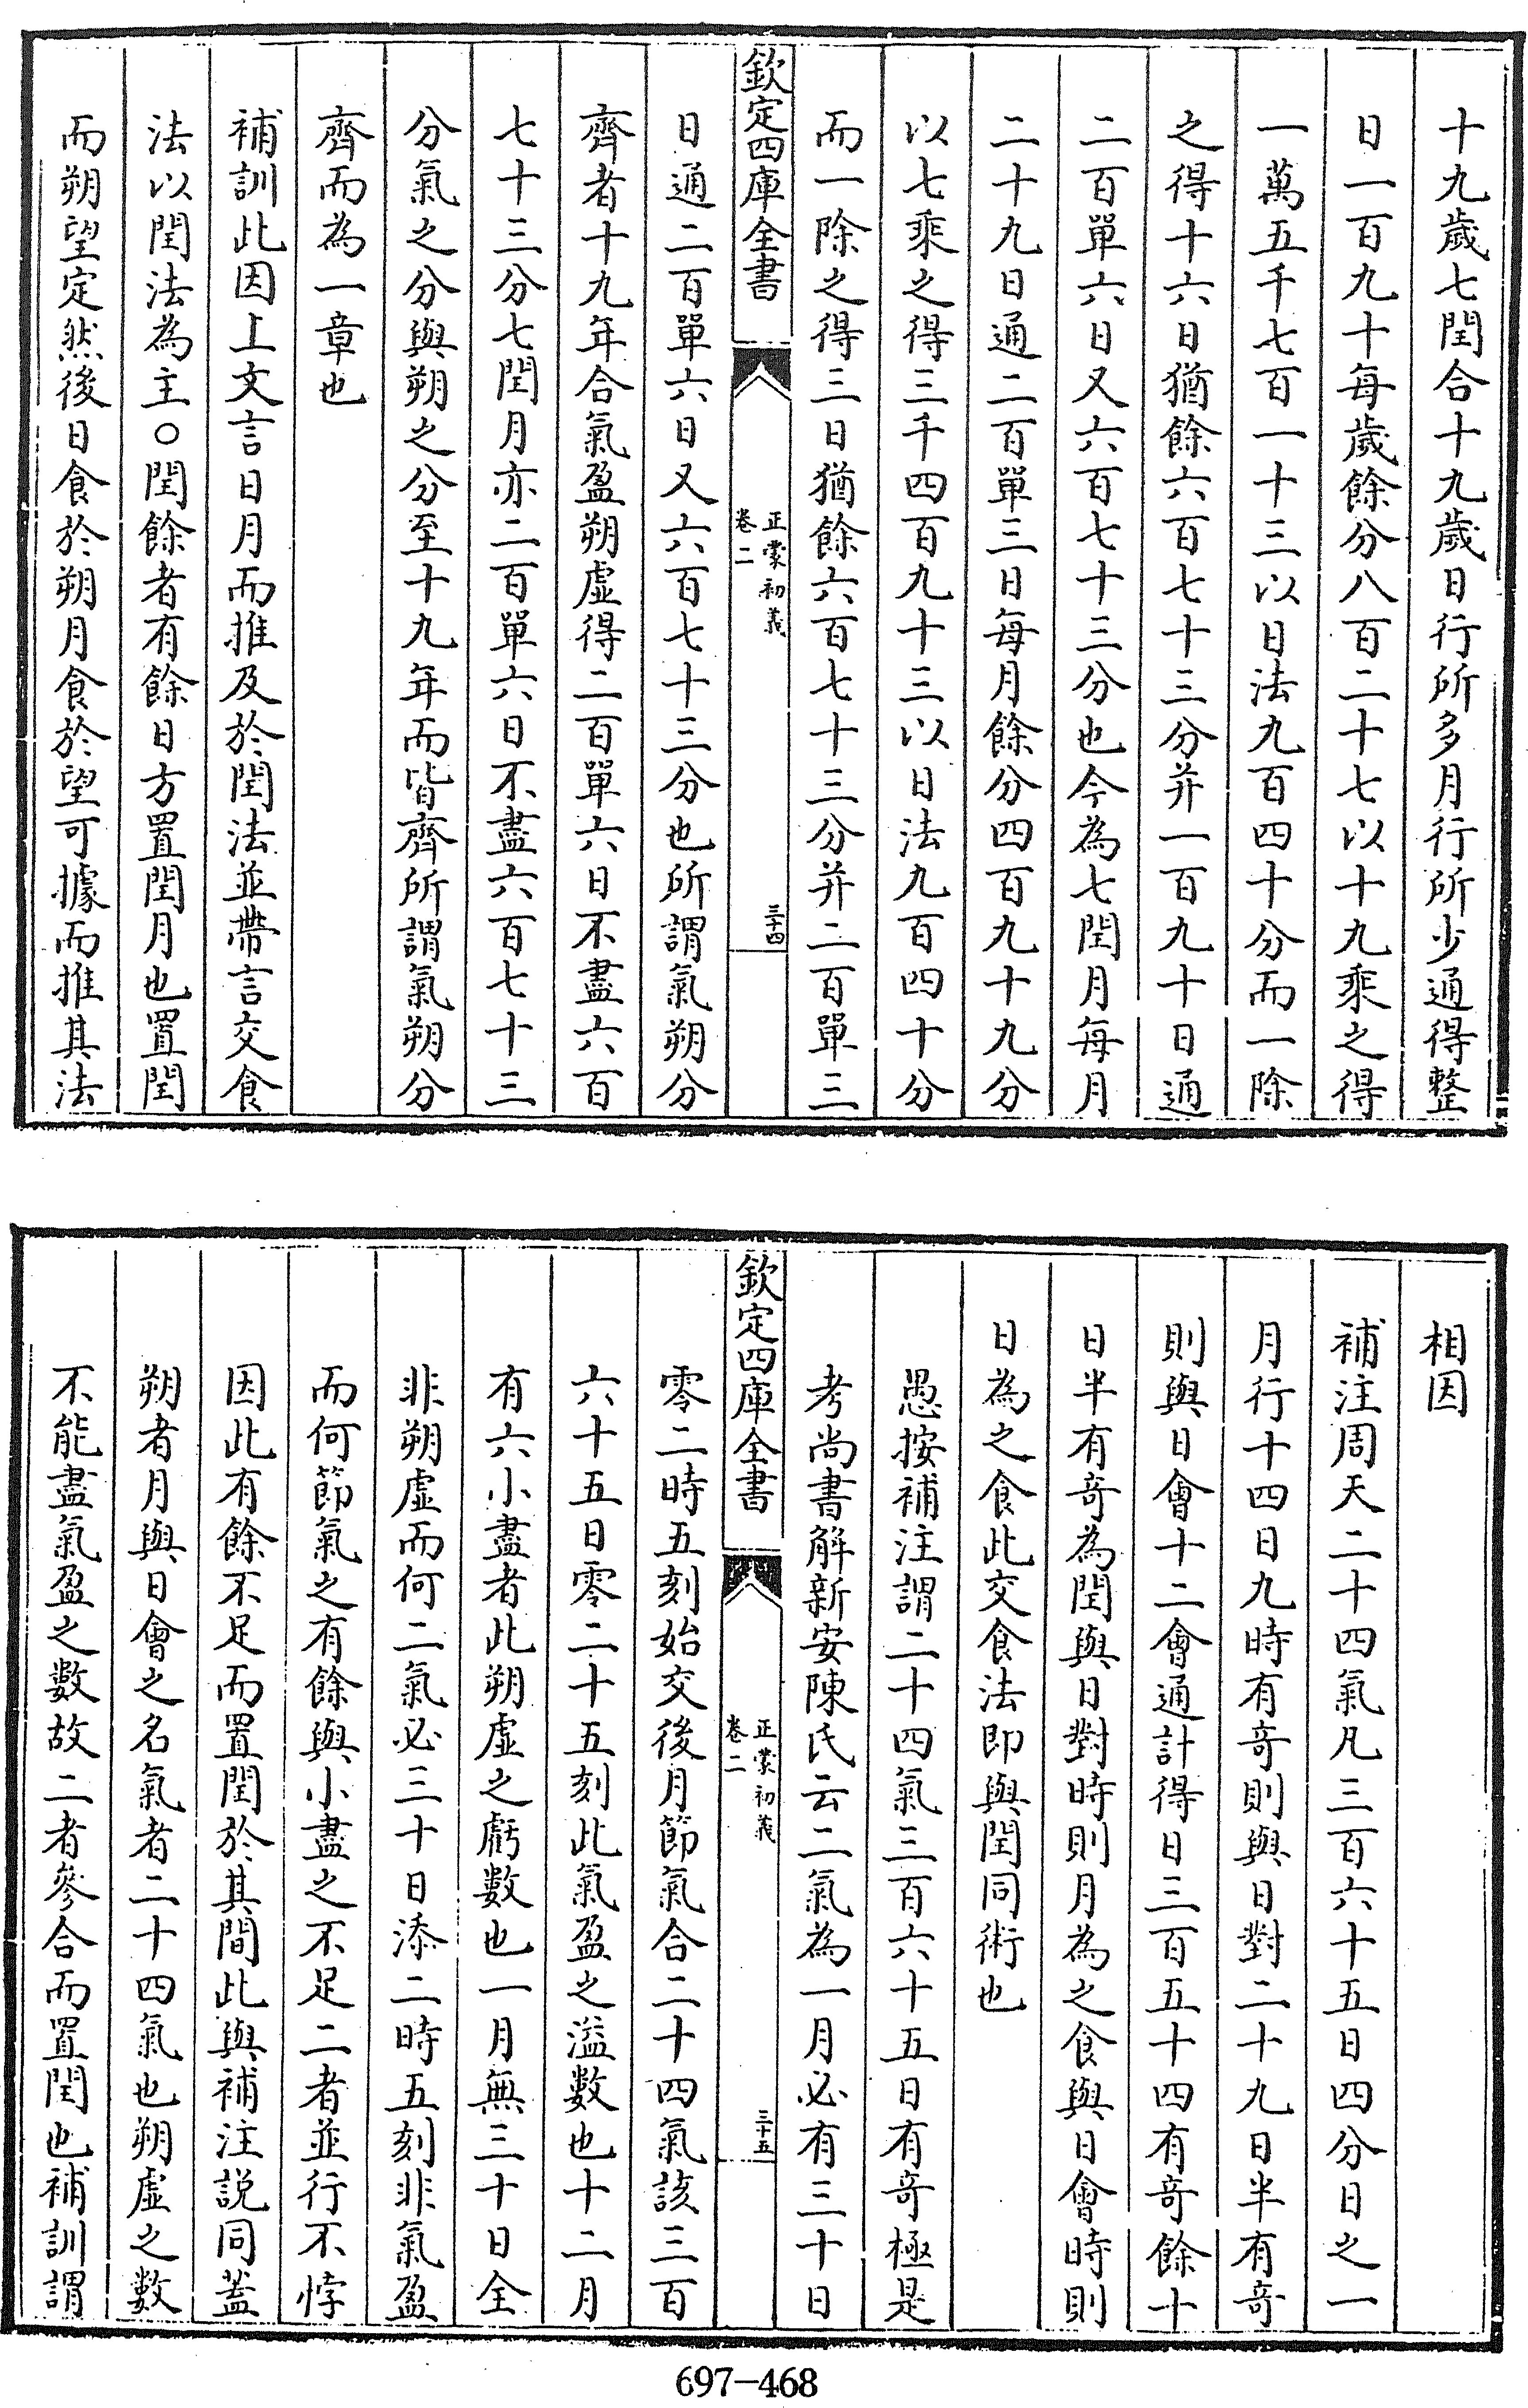 十九歲七閏合十九歲日行所多月行所少通得整
日一百九十每歲餘分八百二十七以十九乘之得
一萬五千七百一十三以日法九百四十分而一除
之得十六日猶餘六百七十三分并一百九十日通
二百單六日又六百七十三分也今為七閏月每月
二十九日通二百單三日每月餘分四百九十九分
以七乘之得三千四百九十三以日法九百四十分
而一除之得三日猶餘六百七十三分并二百單三
欽定四庫全書
正蒙初義
卷二
三十四
日通二百單六日又六百七十三分也所謂氣朔分
齊者十九年合氣盈朔虛得二百單六日不盡六百
七十三分七閏月亦二百單六日不盡六百七十三
分氣之分與朔之分至十九年而皆齊所謂氣朔分
齊而為一章也
補訓此因上文言日月而推及於閏法並帶言交食
法以閏法為主○閏餘者有餘日方置閏月也置閏
而朔望定然後日食於朔月食於望可據而推其法
相因
補注周天二十四氣凡三百六十五日四分日之一
月行十四日九時有奇則與日對二十九日半有奇
則與日會十二會通計得日三百五十四有奇餘十
日半有奇為閏與日對時則月為之食與日會時則
日為之食此交食法即與閏同術也
愚按補注謂二十四氣三百六十五日有奇極是
考尚書解新安陳氏云二氣為一月必有三十日
欽定四庫全書
正蒙初義
卷二
三十五
零二時五刻始交後月節氣合二十四氣該三百
六十五日零二十五刻此氣盈之溢數也十二月
有六小盡者此朔虛之虧數也一月無三十日全
非朔虛而何二氣必三十日添二時五刻非氣盈
而何節氣之有餘與小盡之不足二者並行不悖
因此有餘不足而置閏於其間此與補注說同蓋
朔者月與日會之名氣者二十四氣也朔虛之數
不能盡氣盈之數故二者參合而置閏也補訓謂
697-468